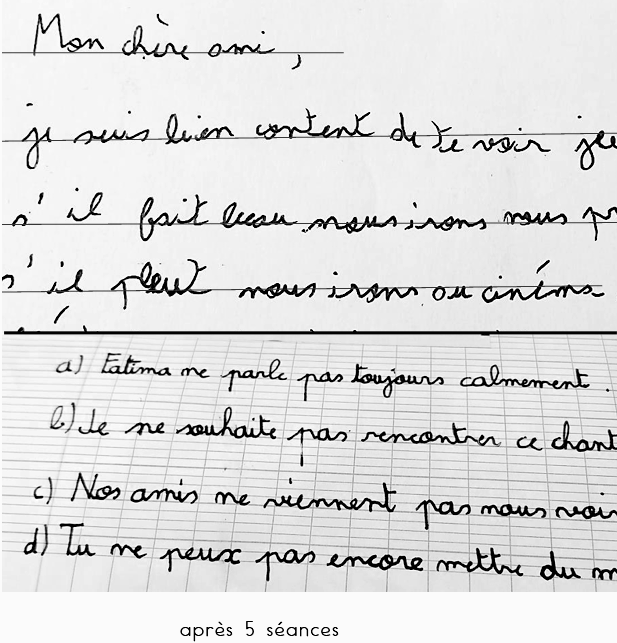 Mon chère ami,
je suis bien content de te voir jeu
s'il fait beau nous irons nous pr
s'il pleut nous irons ou cinéma
a) Fatima ne parle pas toujours calmement.
b) Je ne souhaite pas rencontrer ce chant
c) Nos amis ne viennent pas nous voir
d) Tu ne peux pas encore mettre du m
après 5 séances